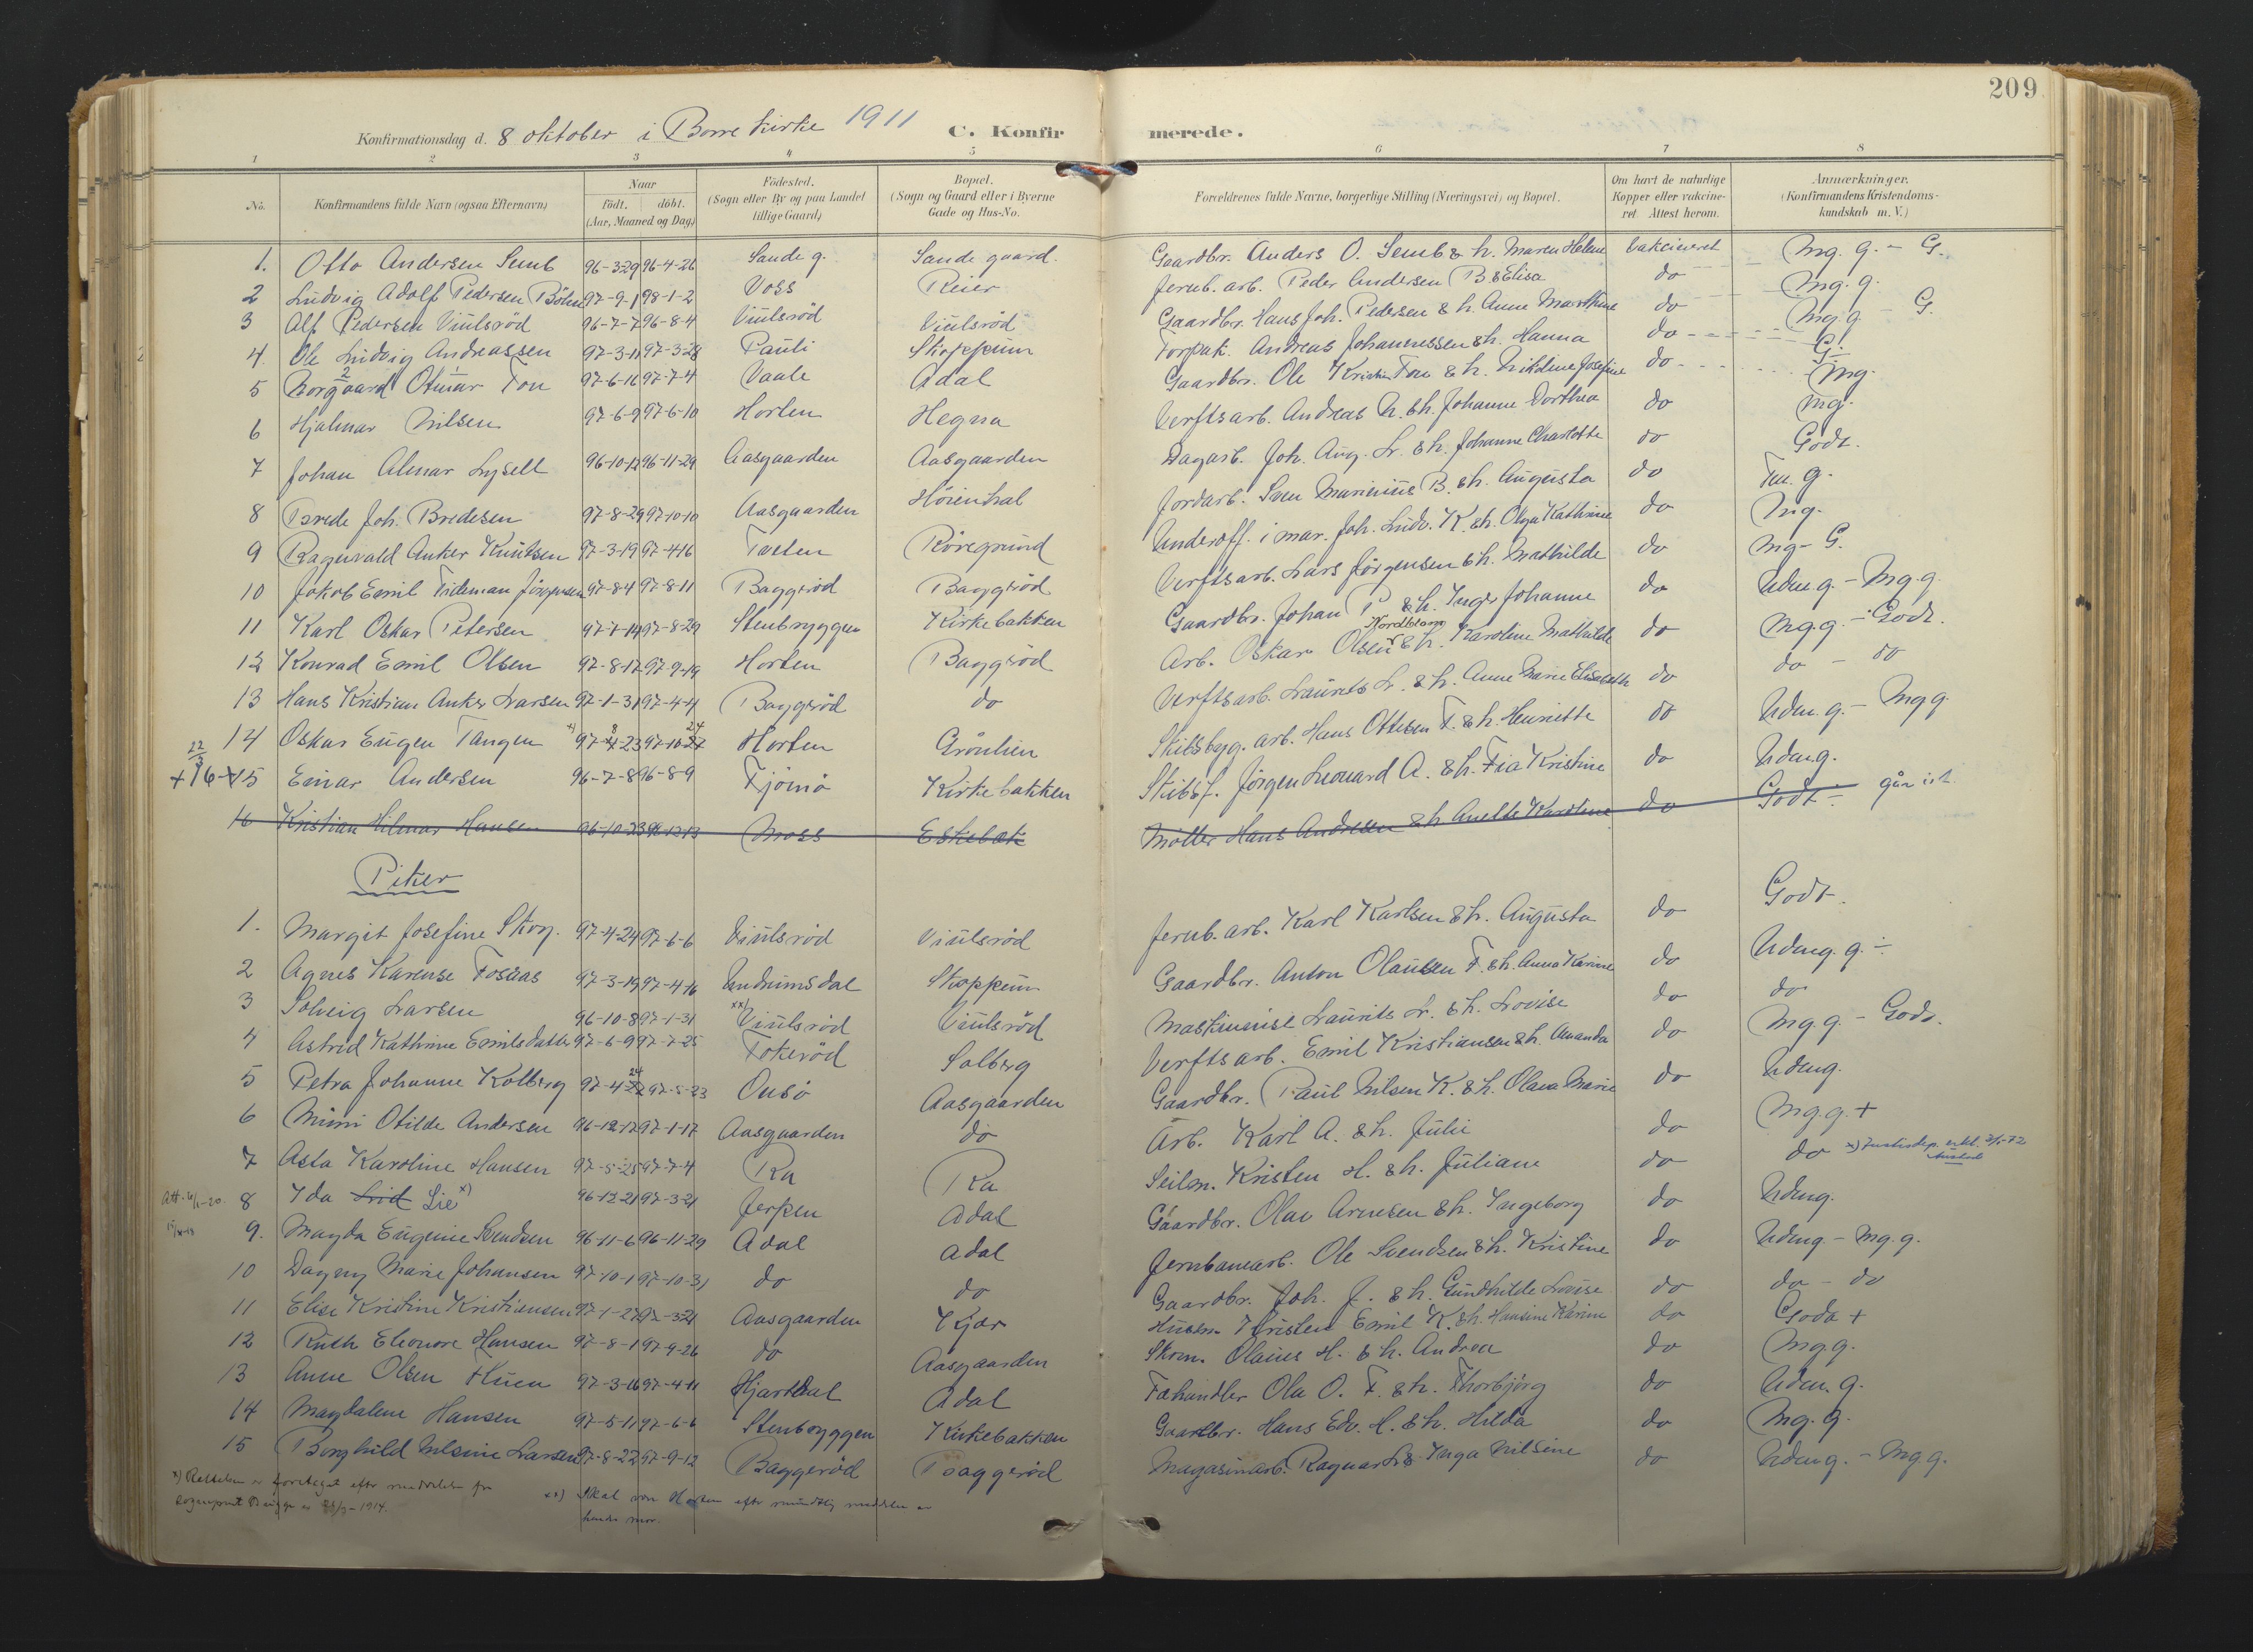 209
Konfirmationsdag d. 8 oktober i Borre kirke 1911 C. Konfirmerede.
1 2 3 4 5 6 7 8
No. Konfirmandens fulde Navn (ogsaa Efternavn) Naar født. døbt. (Aar, Maaned og Dag) Födested. (Sogn eller By og paa Landet tillige Gaard) Bopæl. (Sogn og Gaard eller i Byerne Gade og Hus-No. Forældrenes fulde Navne, borgerlige Stilling (Næringsvei) og Bopæl. Om havt de naturlige Kopper eller vakcineret. Attest herom. Anmærkninger. (Konfirmandens Kristendomskundskab m. V.)
1. Otto Andersen Semb 96-3-29 96-4-26 Sande g. Sande gaard. Gaardbr. Anders O. Semb & h. Maren Helene vakcineret Mg. g. - G.
2 Ludvig Adolf Pedersen 97-9-1 98-1-2 Voss Reier Jernb. arb. Peder Andersen B. & Elisa do Mg. g.
3 Alf Pedersen Viulsröd 96-7-7 96-8-4 Viulsröd Viulsröd Gaardbr. Hans Joh. Pedersen & h. Anne Marthine do Mg. g - G.
4. Ole Ludvig Andreassen 97-3-11 97-3-28 Pauli Skoppum Forpak. Andreas Johannessen & h. Hanna do G.
5 Borgaard Otmar Fon 97-6-16 97-7-4 Vaale Adal Gaardbr. Ole Kristian Fon & h. Nikoline Josefine do Mg.
6 Hjalmar Nilsen 97-6-9 97-6-10 Horten Hegna Verftsarb. Andreas N. & h. Johanne Dorthea do Mg.
7 Johan Almar Lysell 96-10-12 96-11-29 Aasgaarden Aasgaarden Dagarb. Joh. Aug. L. & h. Johanne Charlotte do Godt.
8 Brede Joh. Bredesen 97-8-29 97-10-10 Aasgaarden Jordarb. Sven Marinius B. & h. Augusta do g.
9 Ragnvald Anker Knutsen 97-3-19 97-4-16 Röregrund Underoff. i mar. Joh. Ludv. K. & h. Olga Kathrine do Mg.
10 Jakob Emil Tideman Jörgensen 97-8-4 97-8-11 Baggeröd Baggeröd Verftsarb. Lars Jörgensen & h. Mathilde do Mg - G.
11 Karl Oskar Petersen 97-7-14 97-8-29 Stenbryggen Kirkebakken Gaardbr. Johan P. & h. Inger Johanne do Udm. g. - Mg. g.
12 Konrad Emil Olsen 97-8-12 97-9-19 Horten Baggeröd Arb. Oskar Olsen Nordblom & h. Karoline Mathilde do Mg. g. - Godt.
13 Hans Kristian Anker Larsen 97-1-31 97-4-4 Baggeröd do Verftsarb. Laurits L. & h. Anne Marie Elisabeth do do - do
14 Oskar Eugen Tangen x) 97-8-23 97-10-24 Horten Grönlien Skibsbyg. arb. Hans Ottesen T. & h. Henriette do Udm. g. - Mg g.
15 Einar Andersen 96-7-8 96-8-9 Tjömö Kirkebakken Skibsf. Jörgen Leonard A. & h. Fia Kristine do Udm g.
16 Kristian Hilmar Hansen 96-10-23 96-12-13 Moss Eskebæk Möller Hans Andresen & h. Anette Karoline do Godt - går ut.
Piker
1. Margit Josefine Skog. 97-4-24 97-6-6 Viulsröd Viulsröd Jernb. arb. Karl Karlsen & h. Augusta do Godt.
2 Agnes Karense Fosaas 97-3-19 97-4-16 Undrumsdal Skoppum Gaardbr. Anton Olausen F. & h. Anna Karine do Udm g. g. -
3 Solveig Larsen 96-10-8 97-1-31 xx) Viulsröd Viulsröd Maskinist Laurits L. & h. Lovise do do
4 Astrid Kathrine Emilsdatter 97-6-9 97-7-25 Fokeröd Solberg Verftsarb. Emil Kristiansen & h. Amanda do Mg. g. - Godt.
5 Petra Johanne Kolberg 97-4-24 97-5-23 Onsö Aasgaarden Gaardbr. Paul Nilsen K. & h. Olava Marie do Udm g.
6 Mimi Otilde Andersen 96-12-12 97-1-17 Aasgaarden do Arb. Karl A. & h. Julie do Mg. g. +
7 Asta Karoline Hansen 97-5-25 97-7-4 Ra Ra Seilm. Kristen H. & h. Juliane do do
8 Ida Lie x) 96-12-21 97-3-21 Jerpen Adal Gaardbr. Olav Arnesen & h. Ingeborg do Udm g.
9. Magda Eugenie Svendsen 96-11-6 96-11-29 Adal Adal Jernbanearb. Ole Svendsen & h. Kristine do Udm g - Mg. g.
10 Dagny Marie Johansen 97-10-1 97-10-31 do do Gaardbr. Joh. J. & h. Gundhilde Lovise do do - do
11 Elise Kristine Kristiansen 97-1-27 97-3-21 Aasgaarden Kjær Husm. Kristen Emil K. & h. Hansine Karine do Godt +
12 Ruth Eleonore Hansen 97-8-1 97-9-26 do Aasgaarden Skom. Olaus H. & h. Andrea do Mg. g.
13 Anne Olsen 97-3-16 97-4-11 Hjartdal Adal Fæhandler Ole O. F. & h. Thorbjörg do Udm. g.
14 Magdalene Hansen 97-5-11 97-6-6 Stenbryggen Kirkebakken Gaardbr. Hans Edv. H. & h. Hilda do Mg. g.
15 Borghild Nilsine Larsen 97-8-22 97-9-12 Baggeröd Baggeröd Magasinarb. Ragnar L. & Inga Nilsine do Udm g. - Mg g.
x) Rettelsen er foretaget efter meddelelse fra
xx) Skal være Horten efter mundtlig meddelelse av
hendes mor.